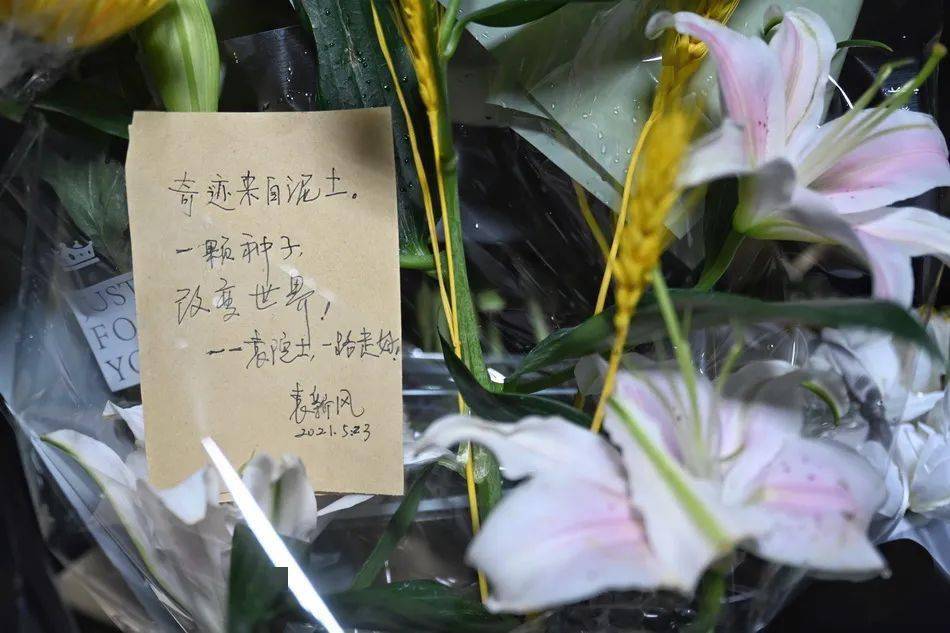 奇迹来自泥土。
一颗种子,
改变世界!
——袁院士,一路走好,
袁新风
2021.5.23
UST
FO
YO